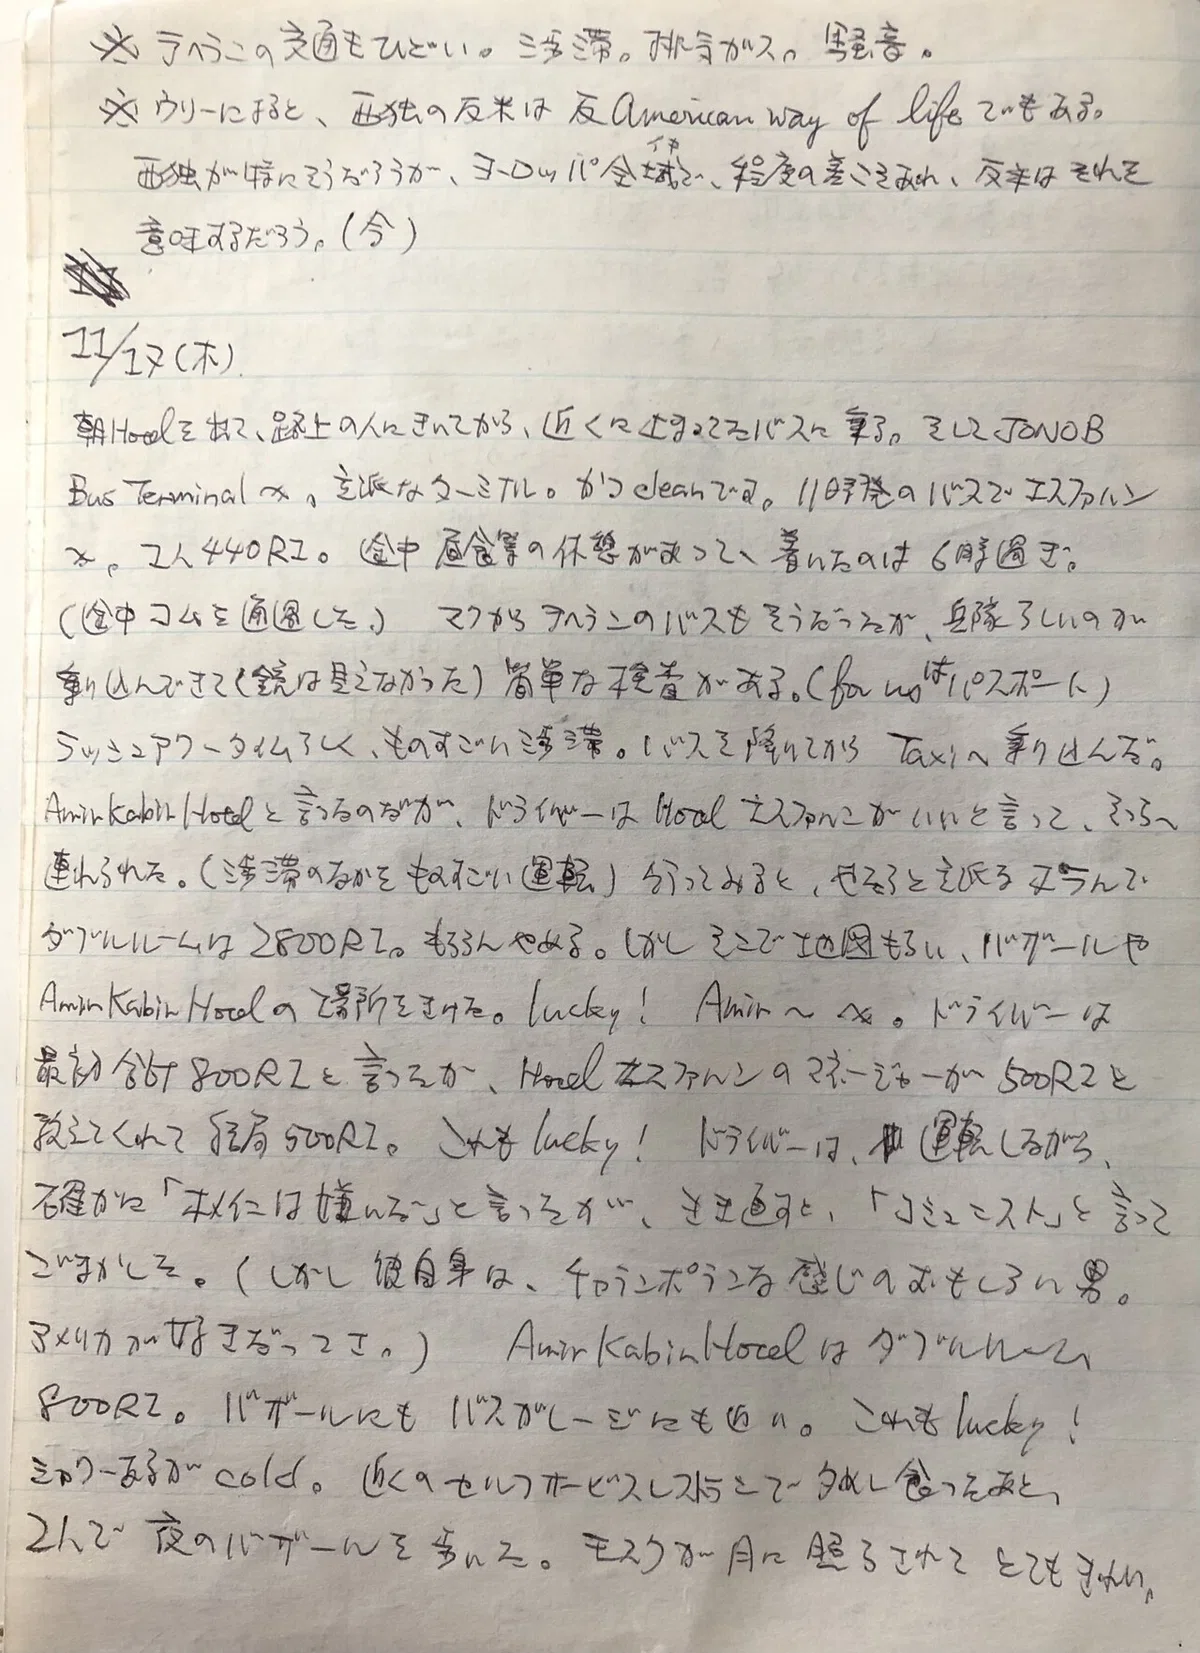 ※ テヘランの交通もひどい。渋滞。排気ガス。騒音。
※ ウリーによると、西独の反米は反American way of lifeでもある。
西独が特にそうだろうが、ヨーロッパ全域で、程度の差こそあれ、反米はそれを
意味するだろう。(今)
11/17(木)
朝Hotelを出て、路上の人にきいてから、近くに止まってたバスに乗る。そしてJONOB
Bus Terminalへ。立派なターミナル。かつcleanです。11時発のバスでエスファハン
へ。1人440RI。途中昼食等の休憩があって、着いたのは6時過ぎ。
(途中コムを通過した。) マクからテヘランのバスもそうだったが、兵隊らしいのが
乗り込んできて(銃は見えなかった)簡単な検査がある。(for usはパスポート)
ラッシュアワータイムらしく、ものすごい渋滞。バスを降りてからTaxiへ乗り込んだ。
AmirKabir Hotelと言ったのだが、ドライバーはHotel エスファハンがいいと言って、そっちへ
連れられた。(渋滞のなかをものすごい運転)行ってみると、やたらと立派な
ダブルルームは2800RI。もちろんやめる。しかしそこで地図もらい、バザールや
AmirKabir Hotelの場所をきけた。lucky! Amir〜へ。ドライバーは
最初合計800RIと言ったが、Hotel エスファハンのマネージャーが500RIと
教えてくれて結局500RI。これもlucky! ドライバーは、運転しながら、
確かに「ホメイニは嫌いだ」と言ったが、きき直すと、「コミュニスト」と言って
ごまかした。(しかし彼自身は、チャランポランな感じのおもしろい男。
アメリカが好きだってさ。) AmirKabir Hotelはダブルルーム
800RI。バザールにもバスガレージにも近い。これもlucky!
シャワーあるがcold。近くのセルフサービスレストランで夕めし食ったあと、
2人で夜のバザールを歩いた。モスクが月に照らされてとてもきれい。